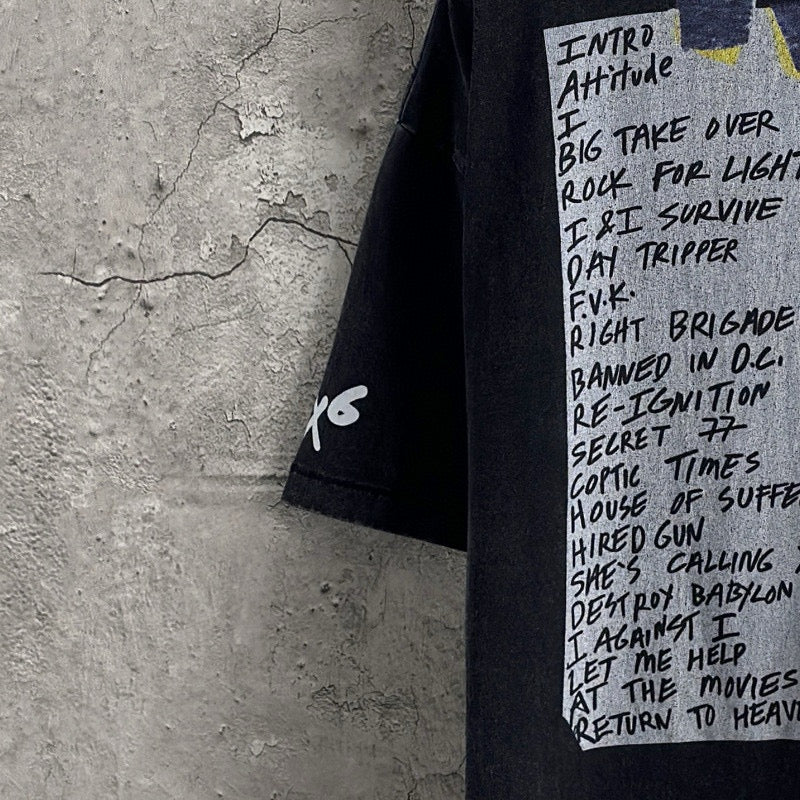 INTRO
Attitude
I
BIG TAKE OVER
ROCK FOR LIGHT
I & I SURVIVE
DAY TRIPPER
F.V.K.
RIGHT BRIGADE
BANNED IN D.C.
RE-IGNITION
SECRET 77
COPTIC TIMES
HOUSE OF SUFFE
HIRED GUN
SHE'S CALLING
DESTROY BABYLON
I AGAINST I
LET ME HELP
AT THE MOVIES
RETURN TO HEAV
X6